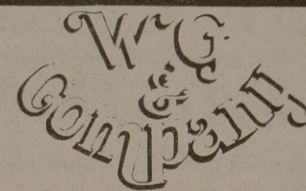 W.G.
&
Company